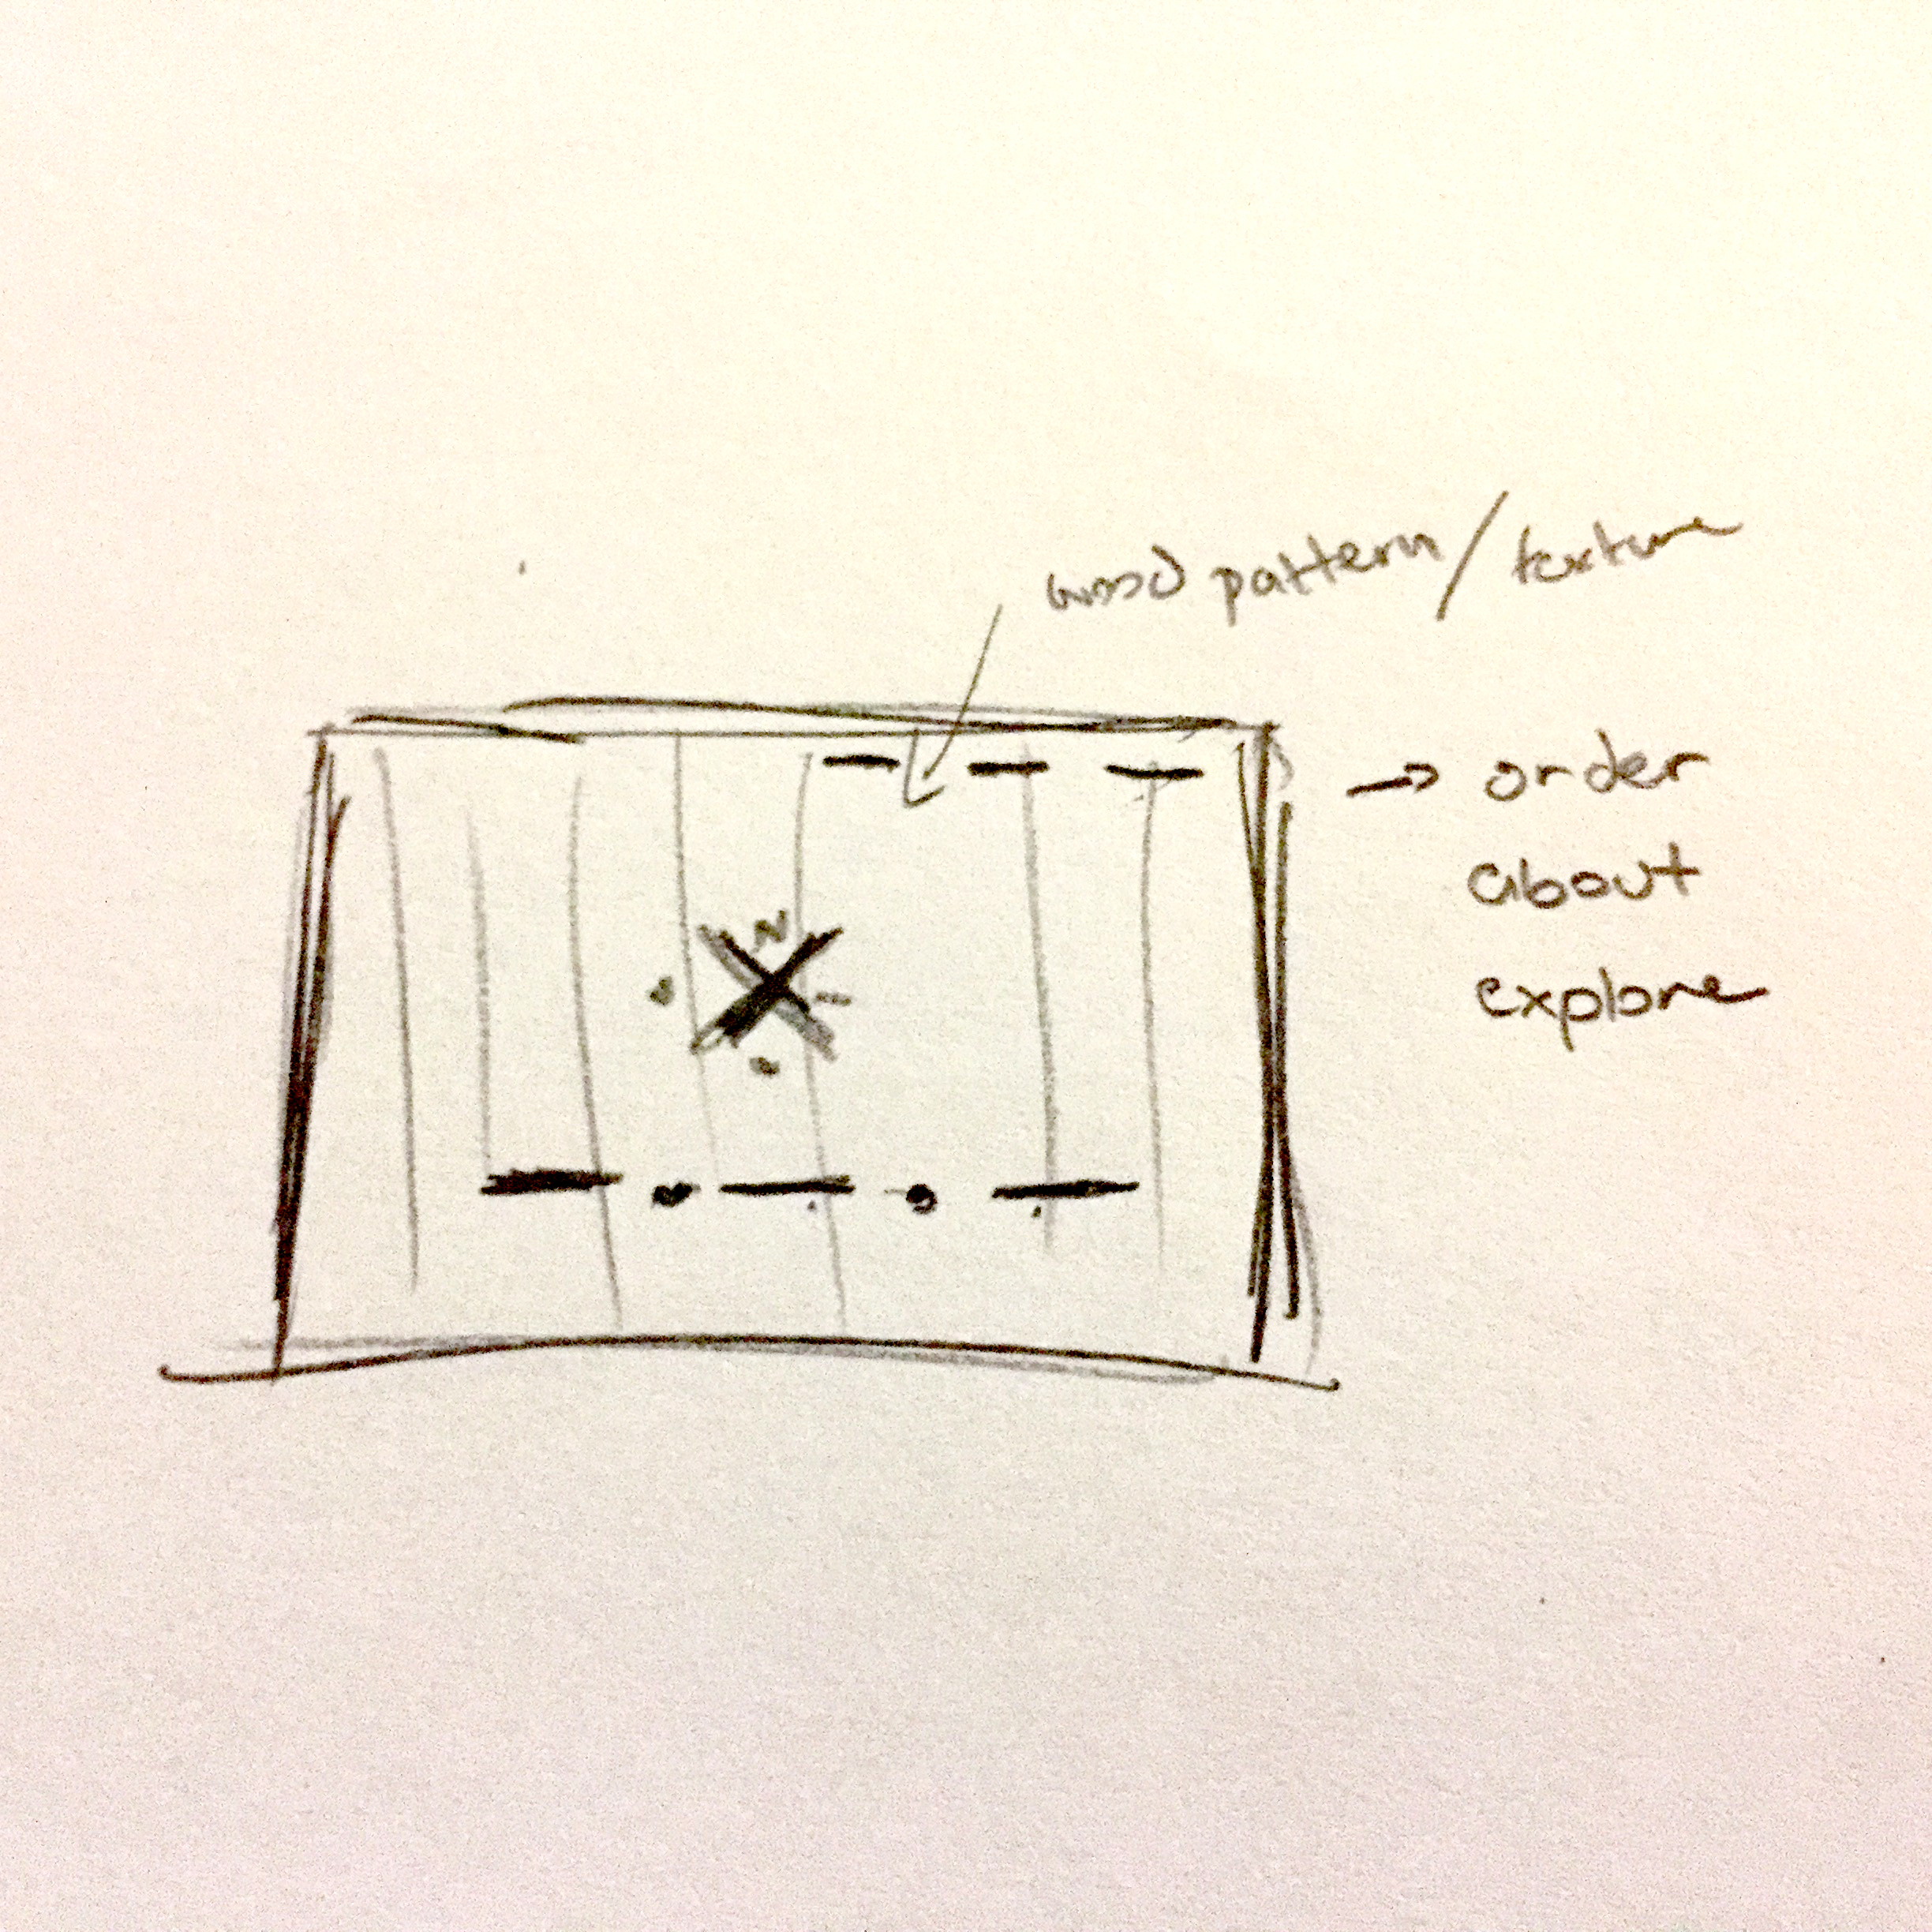 wood pattern/texture
→ order
about
explore
N